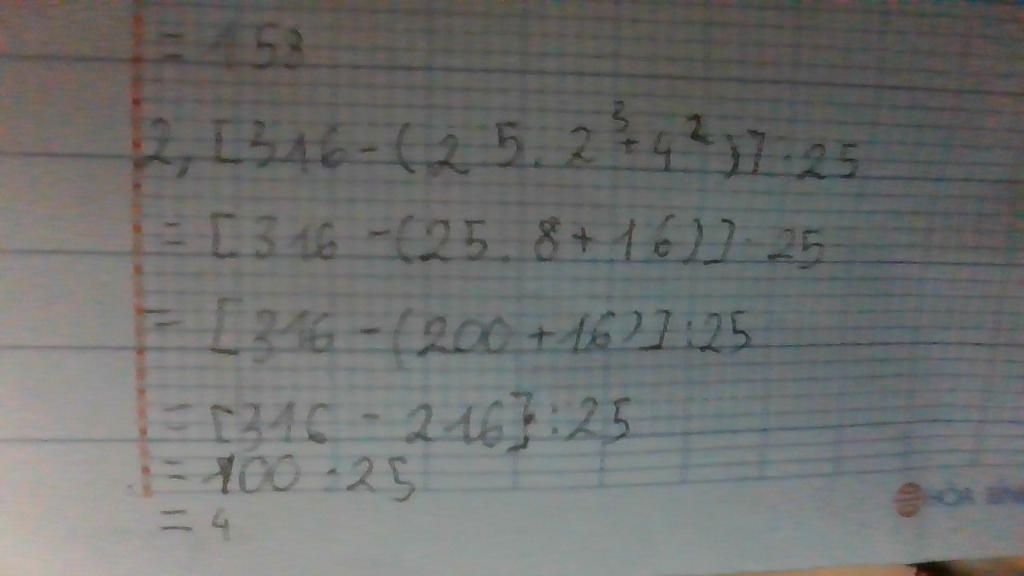 = 153
2, [316 - (25 . 2³ + 4²)] : 25
= [316 - (25 . 8 + 16)] : 25
= [316 - (200 + 16)] : 25
= [316 - 216] : 25
= 100 : 25
= 4